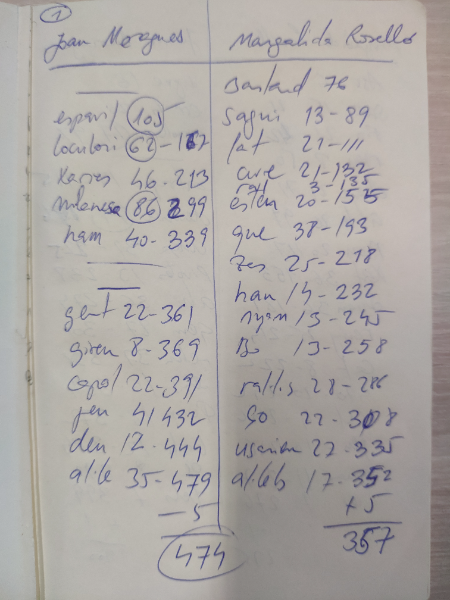 1
Joan Moragues
espavil 105
loculori 62-167
Xarxes 46-213
milanesa 86 299
ham 40-339
gent 22-361
giren 8-369
copol 22-391
jen 41 432
den 12-444
alile 35-479
-5
474
Margalida Rosselló
Bastard 76
Sagui 13-89
fat 21-111
cure 21-132
3-135
esten 20-155
que 38-193
zes 25-218
han 14-232
nyam 13-245
Bo 13-258
rallis 28-286
So 22-308
335
alileb 17-352
+5
357